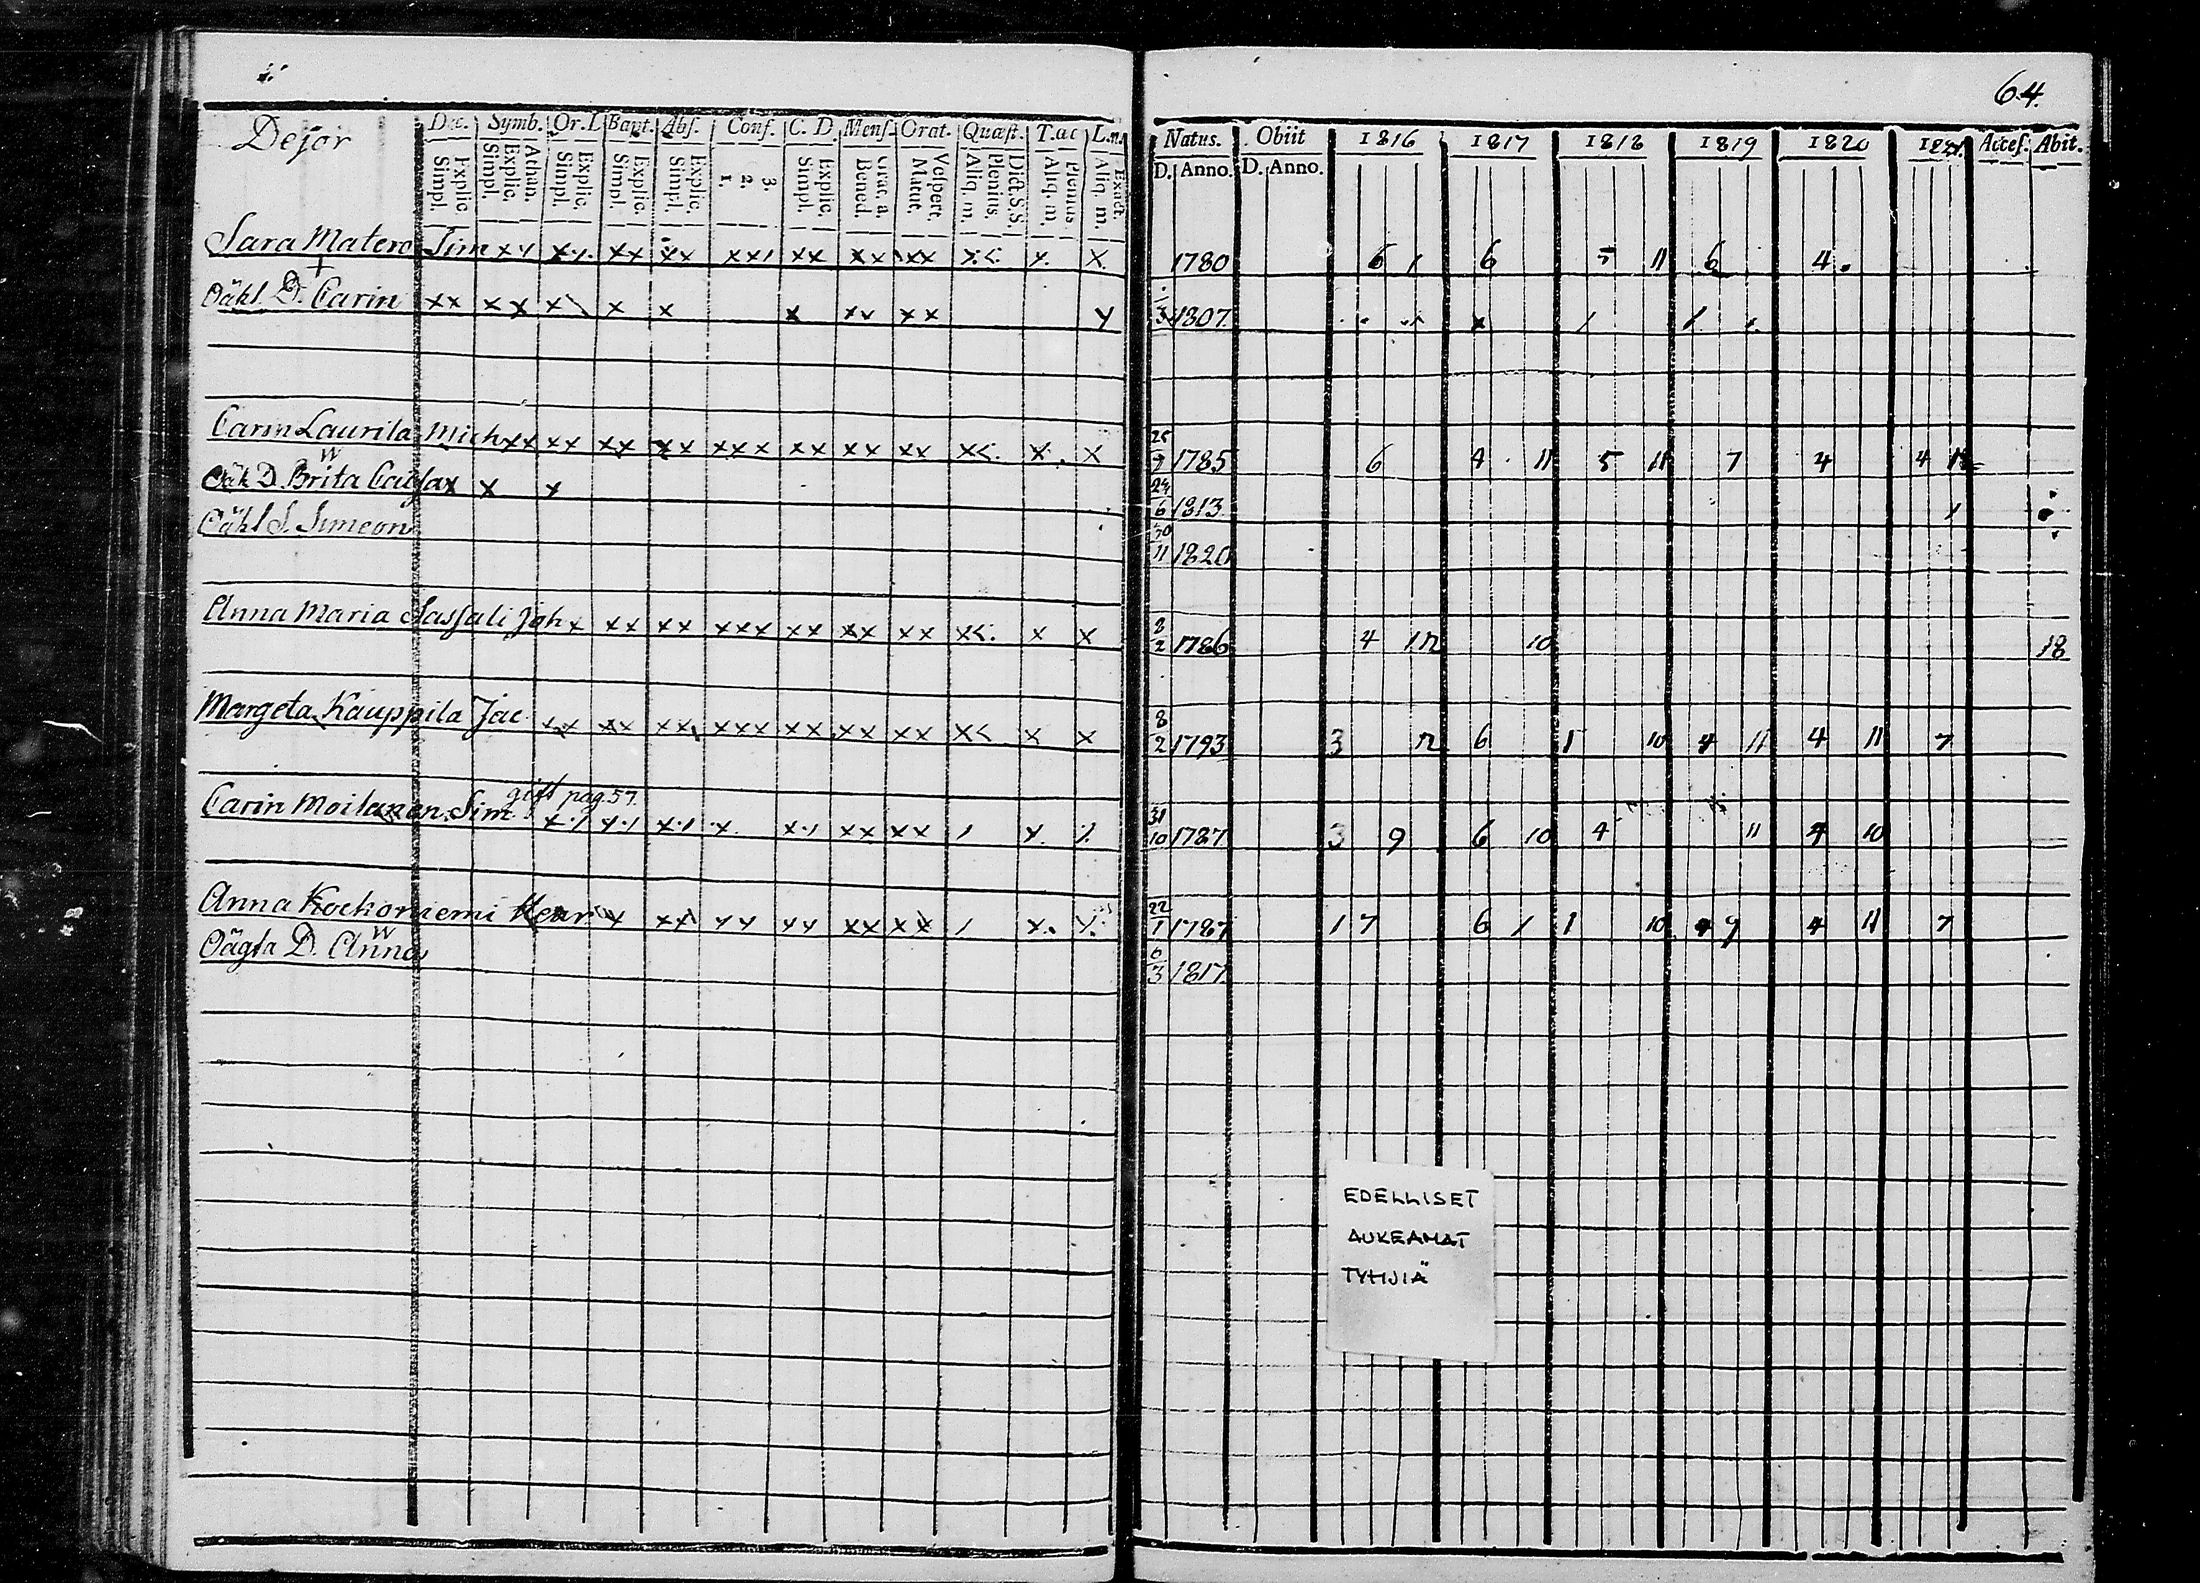 64.
Dejor Dec. Symb. Or. D Bapt. Abs. Conf. C. D. Mens. Orat. Quæst. T. ac L. m.
Explic. Simpl. Athan. Explic. Simpl. Explic. Simpl. Explic. Simpl. Explic. Simpl. 3. 2. 1. Explic. Simpl. Grac. a. Bened. Vespert. Matut. Dict. S. S. Plenius. Aliq. m. Plenius Aliq. m. Exact. Aliq. m.
Natus. Obiit 1816 1817 1818 1819 1820 1821. Access. Abit.
D. Anno. D. Anno.
Sara Matero Sim xx xx xx xx xx x xx xx xx x x. 1780 6 1 6 5 11 6 4.
Oäkt. D. Carin xx xx x x x x xx xx 3 1807.
Carin Laurila Mich xx xx xx xx xxx xx xx xx x x x 1785 6 4 11 5 11 7 4 4
Oäk D. Brita Cajsa x x x 24 6 1813.
Oäkt S. Simeon 30 11 1820
Anna Maria Sassali Joh x xx xx xxx xx xx xx x x x 8 2 1786 4 12 10 18
Margeta Kauppila Jac. xx xx xx xxx xx xx xx x x x 8 2 1793 3 12 6 1 10 4 11 4 11 7
gift pag. 57.
Carin Moilanen Sim x x x x x xx xx x 31 10 1787 3 9 6 10 4 11 4 10
Anna Kockoniemi Henr x xx xx xx xx xx x. 22 1 1787 1 7 6 1 1 10 4 9 4 11 7
Oägta D. Anna 6 3 1817.
EDELLISET
AUKEAMAT
TYHJIÄ